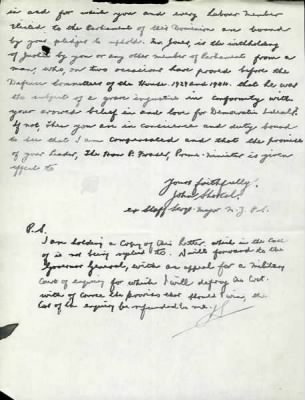 is and for which you and every Labour Member
elected to the Parliament of this Dominion are bound
by your pledges to uphold. Mr. Jones, is the withholding
of Justice by you or any other member of Parliament from a
man, who, on two occasions have proved before the
Defence Committees of the House 1929 and that he was
the subject of a grave injustice in conformity with
your avowed belief in and love for Democratic Ideals,
if not, Then you are in conscience and duty bound
to see that I am compensated and that the promise
of your leader, The Hon P. Fraser, Prime Minister is given
effect to
Yours faithfully.
John
ex Staff Sergt. Major N.Z. P.S.
P.S.
I am holding a Copy of this letter, which in the case
of it not being replied to. I will forward to the
Governor General, with an appeal for a Military
Court of enquiry for which I will defray the Cost.
with of course the proviso that should I win, the
Cost of the enquiry be refunded to me.
JS